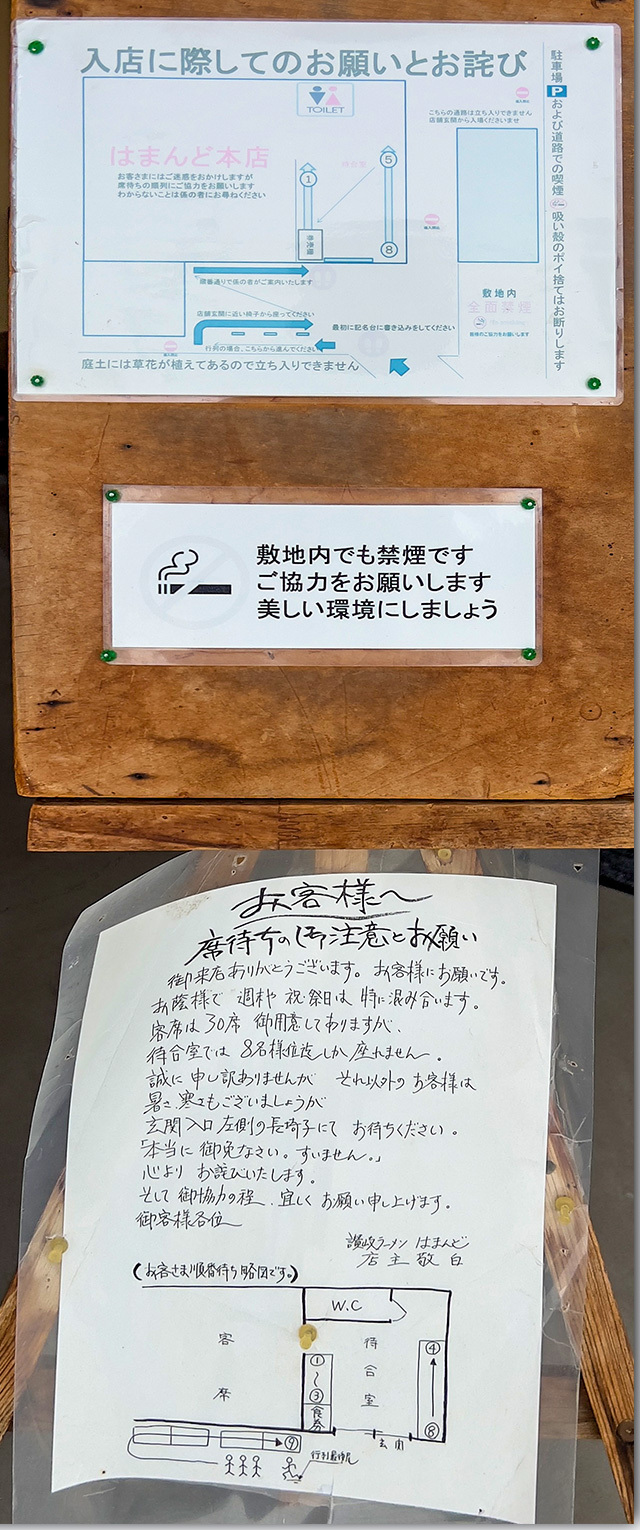 入店に際してのお願いとお詫び
TOILET
はまんど本店
お客さまにはご迷惑をおかけしますが
席待ちの順列にご協力をお願いします
わからないことは係の者にお尋ねください
①
⑤
⑧
待合室
券売機
こちらの通路は立ち入りできません
店舗玄関から入場くださいませ
駐車場Pおよび道路での喫煙 吸い殻のポイ捨てはお断りします
順番通りで係の者がご案内いたします
店舗玄関に近い椅子から座ってください
最初に記名台に書き込みをしてください
行列の場合、こちらから進んでください
敷地内
全面禁煙
庭土には草花が植えてあるので立ち入りできません
敷地内でも禁煙です
ご協力をお願いします
美しい環境にしましょう
お客様へ
席待ちのご注意とお願い
御来店ありがとうございます。お客様にお願いです。
お蔭様で 週末や 祝・祭日は 特に混み合います。
客席は30席 御用意してありますが、
待合室では 8名様位迄しか座れません。
誠に申し訳ありませんが それ以外のお客様は
暑さ、寒さもございましょうが
玄関入口左側の長椅子にて お待ちください。
「本当に御免なさい。すいません。」
心より お詫びいたします。
そして御協力の程、宜しく お願い申し上げます。
御客様各位
讃岐ラーメン はまんど
店主敬白
(お客さま順番待ち略図です。)
W.C
客席
待合室
①
〜
③
食券
④
⑧
玄関
⑨
行列最後尾